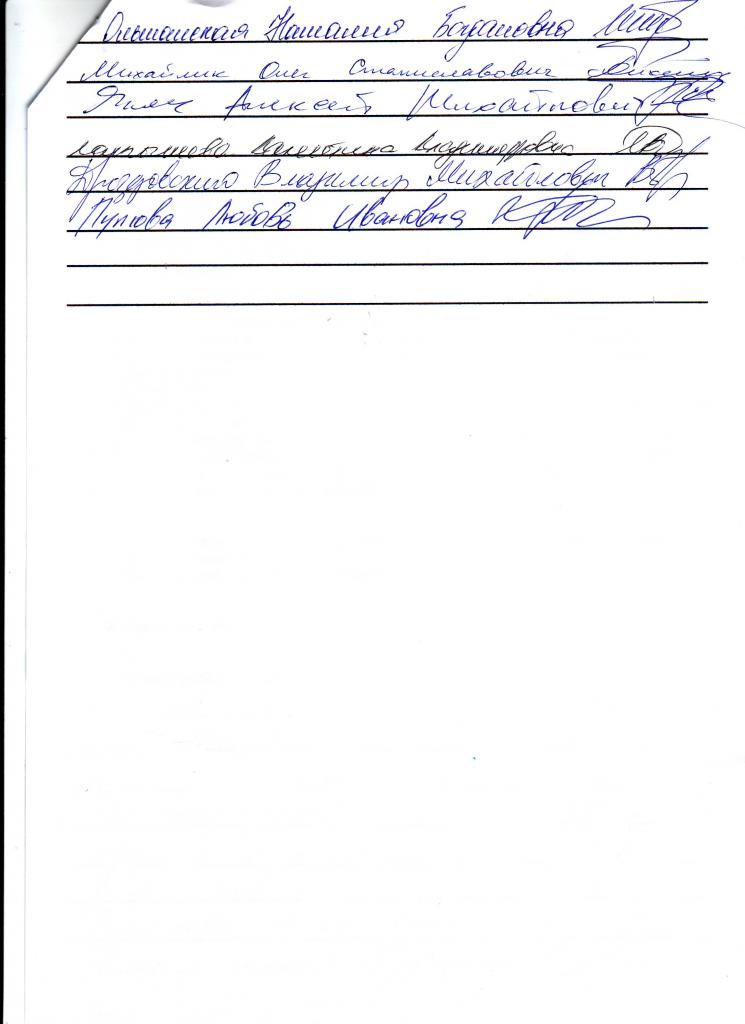 Ольшанская Наталия Богдановна
Михайлик Олег Станиславович
Алексей Михайлович
Валентина Владимировна
Дроздовский Владимир Михайлович
Любовь Ивановна